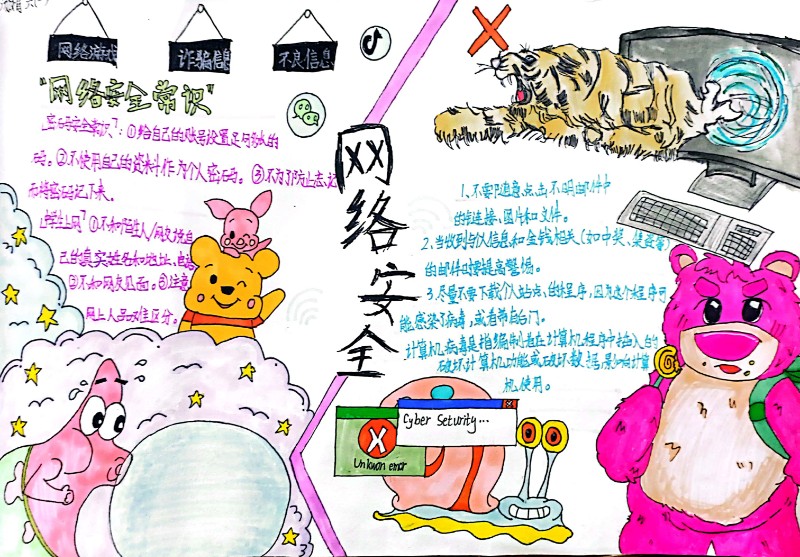 网络游戏
诈骗信息
不良信息
"网络安全常识"
密码安全常识": ①给自己的账号设置足够长的
码。②不使用自己的资料作为个人密码。③不为了防止忘记
而将密码记下来。
中学生上网" ①不和陌生人/网友说自
己的真实姓名和地址、电话
②不和网友见面。③注意
网上人品难区分。
网络安全
1、不要随意点击不明邮件中
的链接、图片和文件。
2、当收到与个人信息和金钱相关(如中奖、集资等)
的邮件时要提高警惕。
3、尽量不要下载个人站点的程序,因为这个程序可
能感染病毒,或者带有后门。
计算机病毒是指编制者在计算机程序中插入的
破坏计算机功能或破坏数据,影响计算
机使用。
Cyber Seturity...
Unkwan error